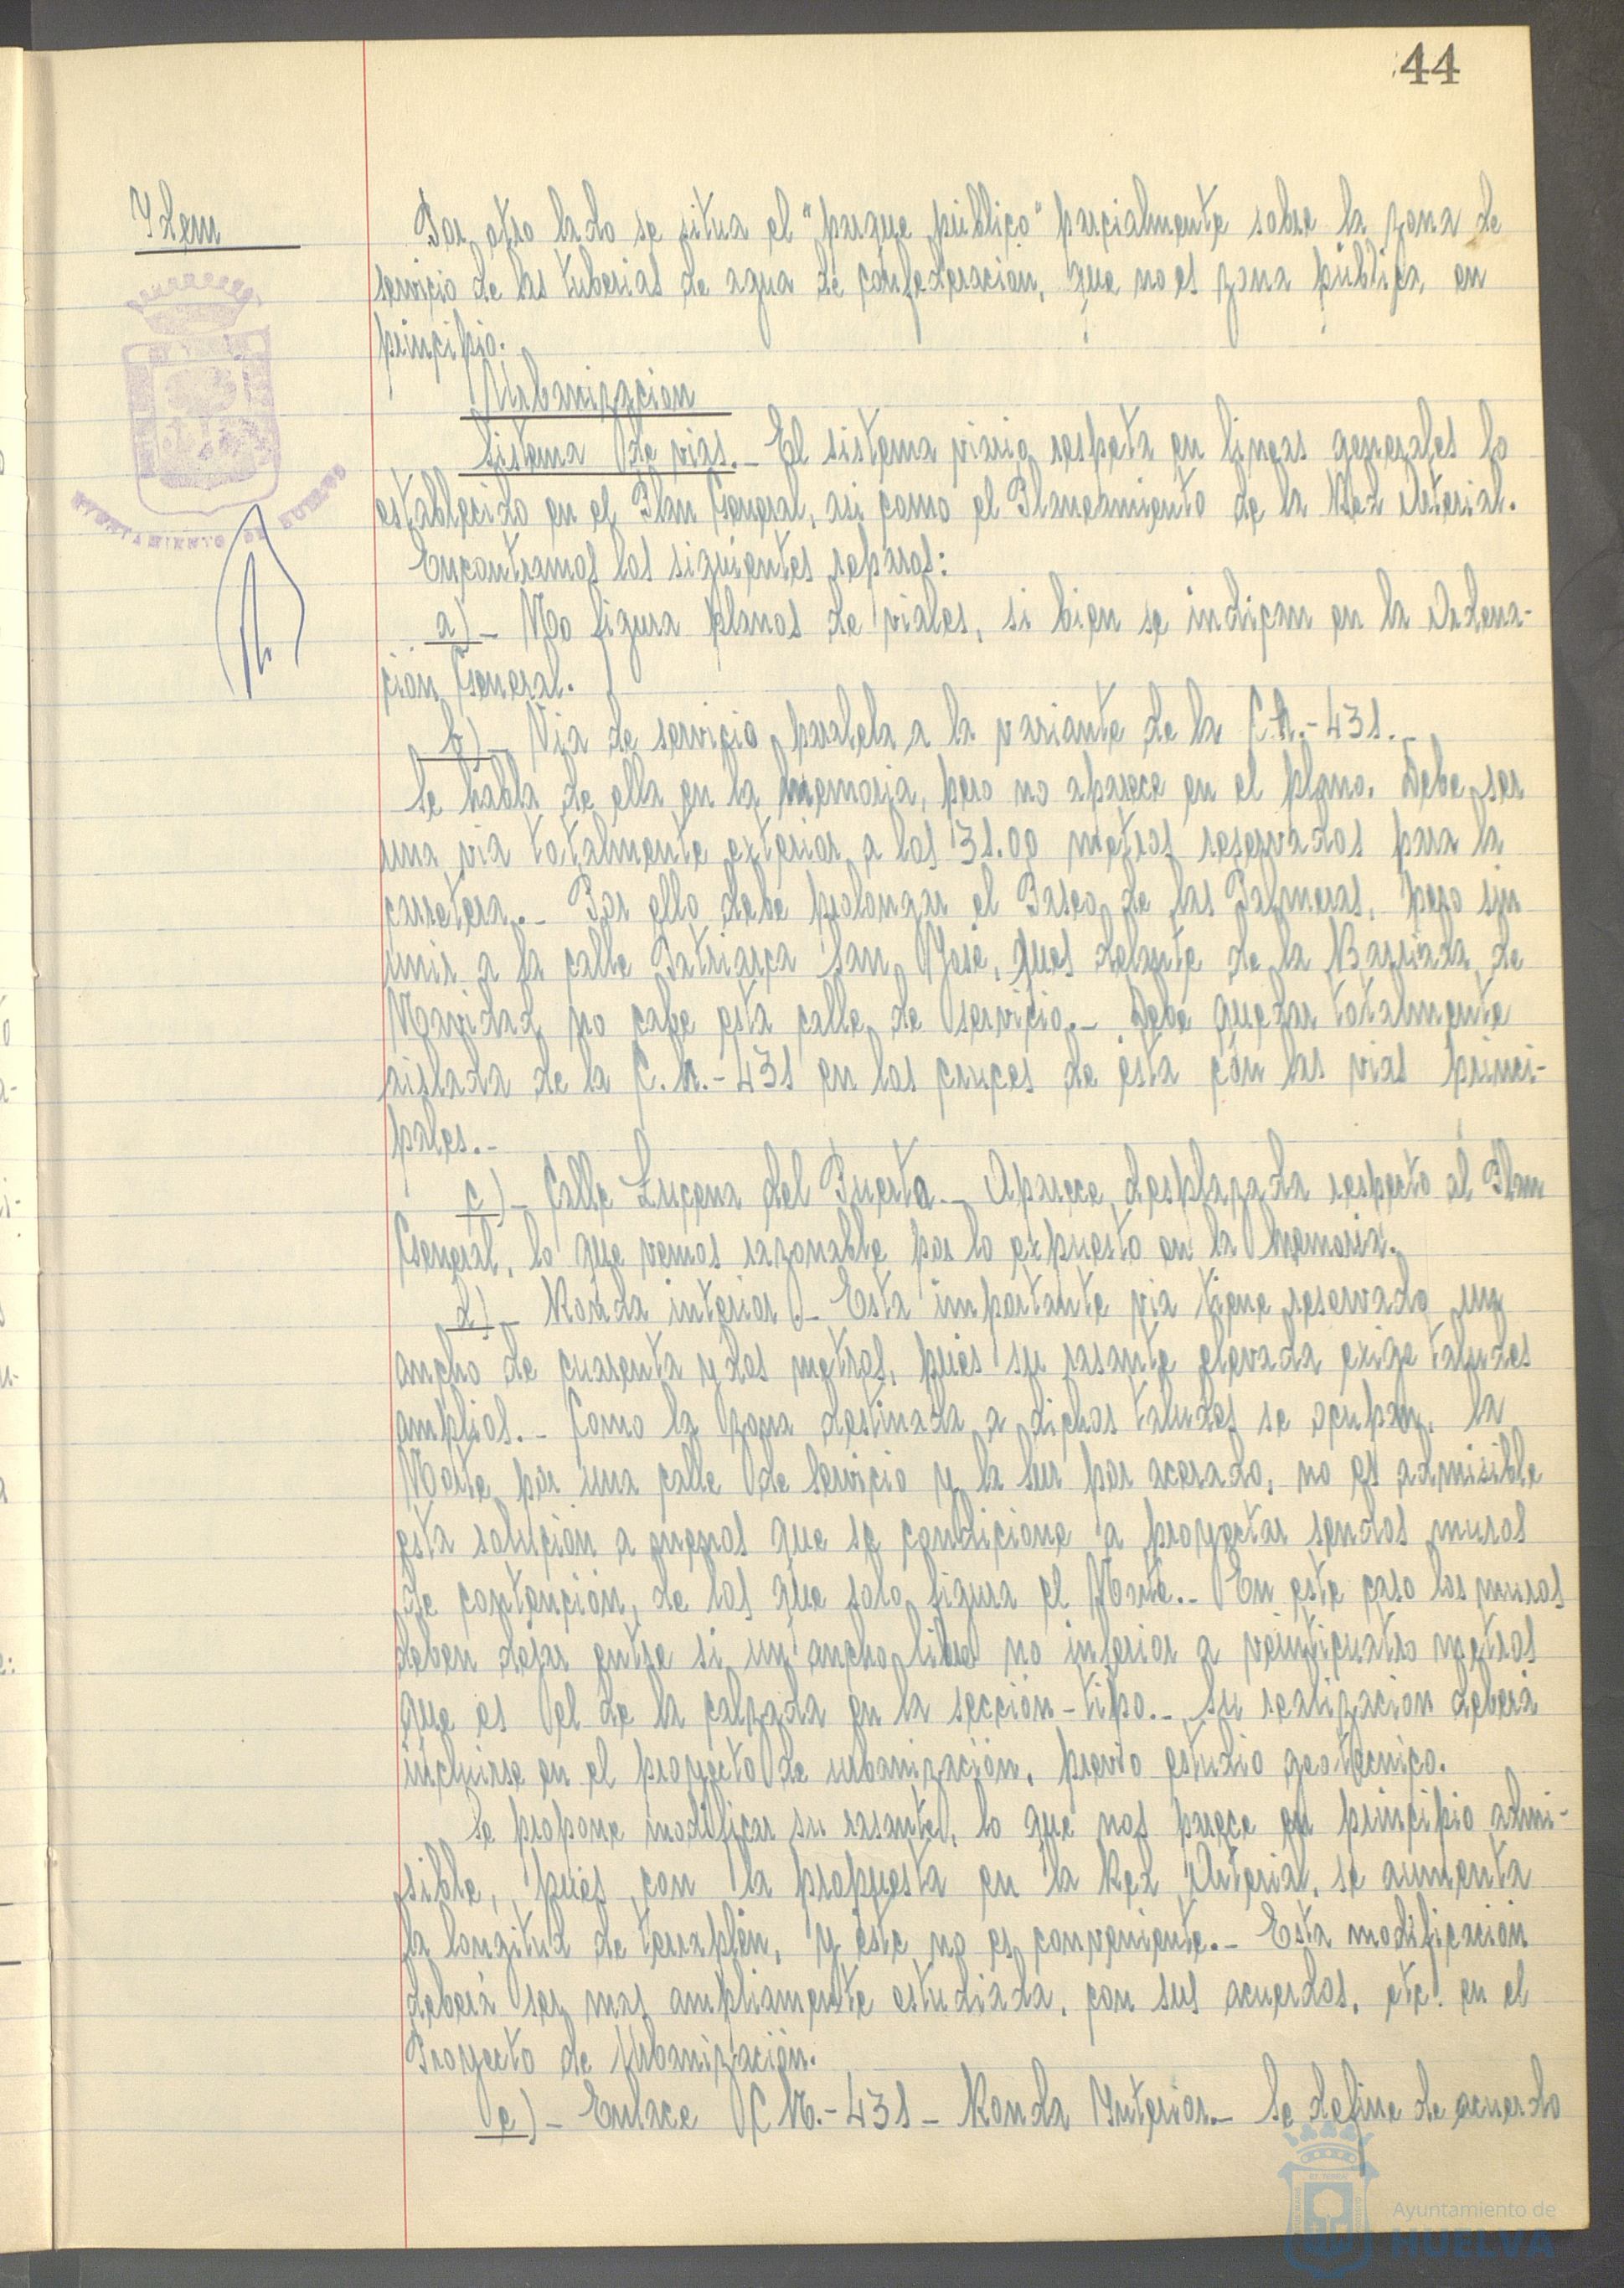 44
Idem
Por otro lado se situa el "parque público" parcialmente sobre la zona de
servicio de las tuberias de agua de confederacion, que no es zona pública, en
principio.
Urbanizacion
Sistema de vias.- El sistema viario respeta en lineas generales lo
establecido en el Plan General, asi como el Planeamiento de la Red Arterial.
Encontramos los siguientes reparos:
a)- No figura planos de viales, si bien se indican en la Ordena-
ción General.
b)- Via de servicio paralela a la variante de la C.N.-431.-
Se habla de ella en la memoria, pero no aparece en el plano. Debe ser
una via totalmente exterior a los 31.00 metros reservados para la
carretera.- Por ello debe prolongar el Paseo de las Palmeras, pero sin
unir a la calle Patriarca San José, pues delante de la Barriada de
Navidad no cabe esta calle de servicio.- Debe quedar totalmente
aislada de la C.N.-431 en los cruces de ésta con las vias princi-
pales.-
c)- Calle Lucena del Puerto.- Aparece desplazada respecto al Plan
General, lo que vemos razonable por lo expuesto en la memoria.
d)- Ronda interior.- Esta importante via tiene reservado un
ancho de cuarenta y dos metros, pues su rasante elevada exige taludes
amplios.- Como la zona destinada a dichos taludes se ocupan, la
Norte por una calle de servicio y la Sur por acerado, no es admisible
esta solución a menos que se condicione a proyectar sendos muros
de contención, de los que solo figura el Norte.- En este caso los muros
deben dejar entre si un ancho libre no inferior a veinticuatro metros
que es el de la calzada en la sección-tipo.- Su realizacion deberá
incluirse en el proyecto de urbanización, previo estudio geotecnico.
Se propone modificar su rasante, lo que nos parece en principio admi-
sible, pues con la propuesta en la Red Arterial, se aumenta
la longitud de terraplén, y éste no es conveniente.- Esta modificación
deberá ser mas ampliamente estudiada, con sus acuerdos, etc. en el
Proyecto de Urbanización.
e)- Enlace C.N.-431 - Ronda Interior.- Se define de acuerdo
AYUNTAMIENTO DE HUELVA
Ayuntamiento de
HUELVA